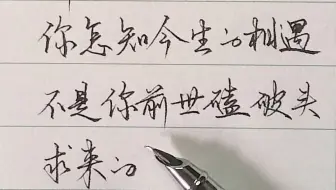 你怎知今生的相遇
不是你前世磕破头
求来的